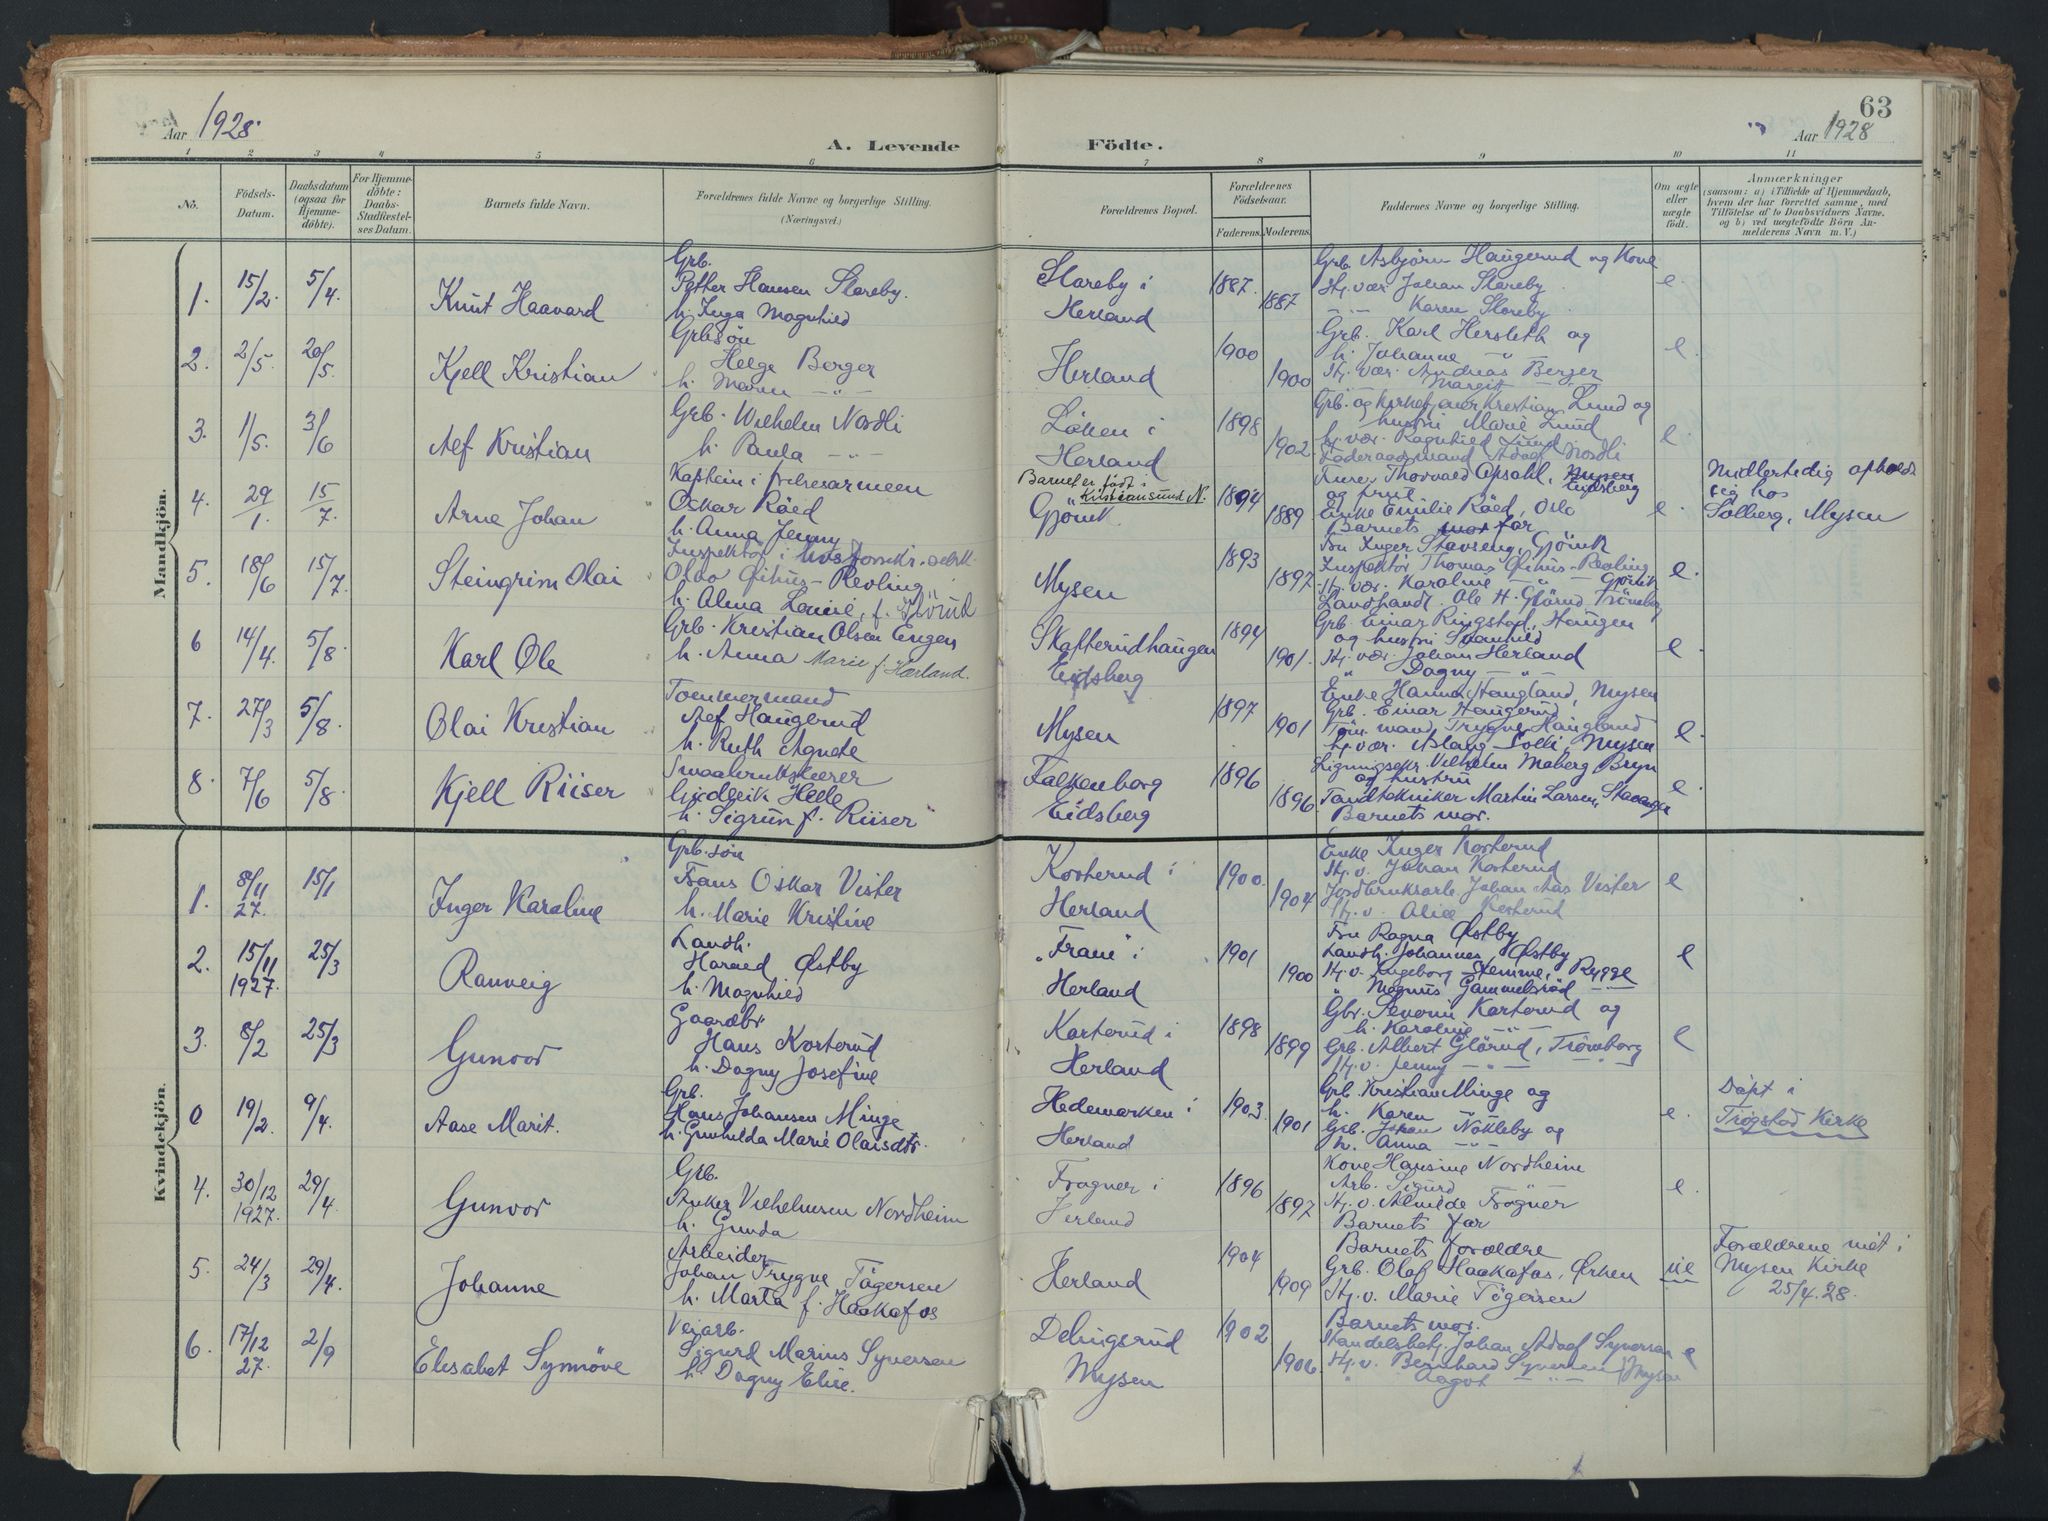 63
Aar 1928. A. Levende Födte. Aar 1928
1 2 3 4 5 6 7 8 9 10 11
No. Födsels-Datum. Daabsdatum (ogsaa for Hjemme-döbte). For Hjemme-döbte: Daabs-Stadfæstel-ses Datum. Barnets fulde Navn. Forældrenes fulde Navne og borgerlige Stilling. (Næringsvei.) Forældrenes Bopæl. Forældrenes Födselsaar. Faderens. Moderens. Faddernes Navne og borgerlige Stilling. Om ægte eller uægte födt. Anmærkninger (saasom: a) i Tilfælde af Hjemmedaab, hvem der har forrettet samme, med Tilföielse af to Daabsvidners Navne, og b) ved uægtefödte Börn An-melderens Navn m. V.)
Mandkjön.
1. 15/2. 5/4. Knut Haavard
Grb.
Petter Hansen Sloreby.
h. Inga Magnhild
Sloreby i
Herland
1887. 1887
Grb. Asbjörn Haugerud og Kone
Hj. vær. Johan Sloreby
Karen Sloreby
e.
2. 2/5. 20/5. Kjell Kristian
Grbsön
Helge Berger
h. Maren -"-
Herland
1900 1900
Grb. Karl Hersleth og
h. Johanne "
Hj. vær. Andreas Berger
Margit -"-
e.
3. 1/5. 3/6 Alf Kristian
Grb. Wilhelm Nordli
h. Paula -"-
Löken i
Herland
1898 1902.
Grb. og Kirketjener Kristian Lund og
hustru Marie Lund
Hj. vær. Ragnhild Lund
Föderaadsmand Adolf Nordli
e.
4. 29/1. 15/7. Arne Johan
Kaptein i frelsesarmeen
Oskar Röed
h. Anna Jenny
Barnet er født i
Kristiansund N.
Gjövik
1894 1889
Thorvald Opsahl, Mysen
Eidsberg
og frue
Enke Emilie Röed, Oslo
Barnets mor far
e.
Midlertidig opholdt
sig hos
Solberg, Mysen
5. 18/6 15/7. Steingrim Olai
Inspektör i
Olav Ophus-Revling
h. Alma Lovise, f.
Mysen
1893 1897
Fru Inger Stavseng, Gjövik
Inspektör Thomas Ophus-Revling
Hj. vær. Karoline -"- Gjövik
Landhandl. Ole H. Glörud Trömborg
e.
6 14/4. 5/8. Karl Ole
Grb. Kristian Olsen Engen
h. Anna Marie f. Hærland.
Skofterudhaugen
Eidsberg
1894 1901.
Grb. Einar Ringstad, Haugen
og hustru Svanhild
Hj. vær. Johan Herland
" Dagny -"-
e.
7. 27/3 5/8. Olai Kristian
Tömmermand
Alf Haugerud
h. Ruth Agnete
Mysen
1897 1901
Enke Hanna Haugland, Mysen
Grb. Einar Haugerud,
Töm. mand Trygve Haugland
Hj. vær. Aslaug Solli, Mysen
e.
8. 7/6 5/8. Kjell Riiser
Smaabrukslærer
Gudleik Helle
h. Sigrun f. Riiser
Falkenborg
Eidsberg
1896 1896
Ligningssekr. Vilhelm Moberg Bryn
og hustru
Tandtekniker Martin Larsen, Stavanger
Barnets mor.
e.
Kvindekjön.
1. 8/11 27. 15/1 Inger Karoline
Grb. sön
Frans Oskar Vister
h. Marie Kristine
Korterud i
Herland
1900. 1904
Enke Inger Korterud
Hj. v. Johan Korterud
Jordbruksarb. Johan Aas Vister
Hj. v. Alice Korterud
e
2. 15/11 1927. 25/3 Ranveig
Landh.
Harald Østby
h. Magnhild
"Fram" i
Herland
1901 1900
Fru Ragna Østby
Landh. Johannes Østby
Hj. v. Ingeborg Stemme, Rygge
" Magnus Gammelsröd -"-
e
3. 8/2 25/3 Gunvor
Gaardbr
Hans Korterud
h. Dagny Josefine
Korterud i
Herland
1898 1899
Gbr. Severin Korterud og
h. Karoline -"-
Grb. Albert Glörud, Trömborg
Hj. v. Jenny -"-
e
0 19/2. 9/4. Aase Marit.
Grb.
Hans Johansen Minge
h. Gunhilda Marie Olaisdtr.
Hedemarken i
Herland
1903 1901
Grb. Kristian Minge og
h. Karen
Grb. Johan Nökleby og
h. Anna -"-
e.
Döpt i
Trögstad Kirke
4. 30/12 1927. 29/4. Gunvor
Grb.
Anker Vilhelmsen Nordheim
h. Gunda
Frogner i
Herland
1896 1897
Kone Hansine Nordheim
Arb. Sigurd "
Hj. v. Almilde Frogner
Barnets far
e.
5. 24/3 29/4. Johanne
Arbeider
Johan Trygve Tögersen
h. Marta f. Haakafos
Herland
1904 1909
Barnets forældre
Grb. Olaf Haakafos, Ørken
Hj. v. Marie Tögersen
ue
Forældrene viet i
Mysen Kirke
25/4.28.
6. 17/12 27. 2/9 Elisabet Synnöve
Veiarb.
Sigurd Marius Syversen
h. Dagny Elise.
Delingsrud
Mysen
1902 1906.
Barnets mor.
Handelsbetj. Johan Adolf Syversen
Hj. v. Bernhard Syversen
" Aagot -"- Mysen
e